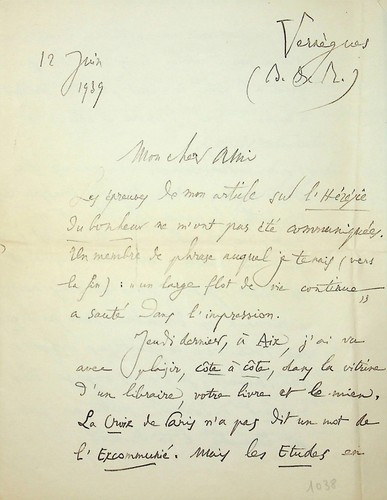 12 Juin
1939
Vernègues
(B. d. R.)
Mon cher Ami
Les épreuves de mon article sur l'Hérésie
du bonheur ne m'ont pas été communiquées.
Un membre de phrase auquel je tenais (vers
la fin) : "un large flot de vie continue"
a sauté dans l'impression.
Jeudi dernier, à Aix, j'ai vu
avec plaisir, côte à côte, dans la vitrine
d'un libraire votre livre et le mien.
La Croix de Paris n'a pas dit un mot de
l'Excommunié. Mais les Etudes en
1038